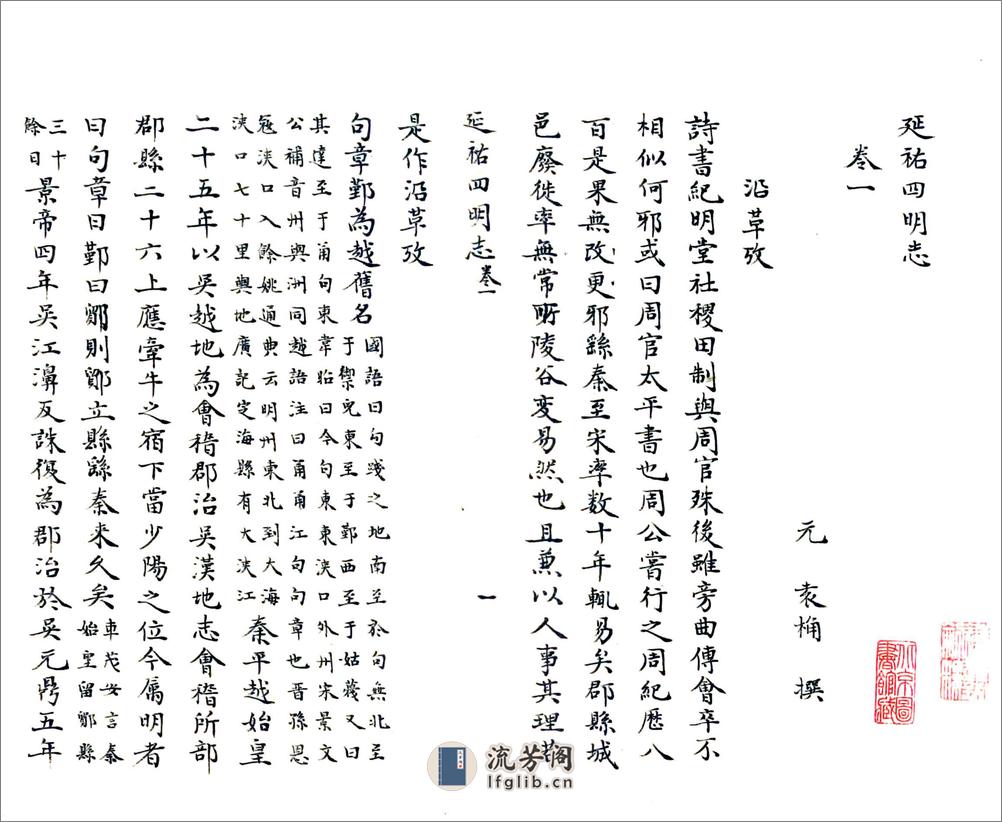 延祐四明志
卷一
元 袁桷 撰
沿革攷
詩書紀明堂社稷田制與周官殊後雖旁曲傳會卒不
相似何邪或曰周官太平書也周公嘗行之周紀歷八
百是果無改更邪繇秦至宋率数十年輒易矣郡縣城
邑廢徙率無常所陵谷变易然也且兼以人事其理
延祐四明志 卷一 一
是作沿革攷
句章鄞為越舊名國語曰句踐之地南至於句無北至
于禦兒東至于鄞西至于姑蔑又曰
其達至于甬句東韋昭曰今句東東浹口外州宋景文
公補音州與洲同越語注曰甬甬江句句章也晋孫恩
冦浹口入餘姚通典云明州東北到大海
浹口七十里輿地廣記定海縣有大浹江秦平越始皇
二十五年以吳越地為會稽郡治吳漢地志會稽所部
郡縣二十六上應牽牛之宿下當少陽之位今属明者
曰句章曰鄞曰鄮則鄮立縣繇秦来久矣車茂安言秦
始皇留鄮縣
三十
餘日景帝四年吳江濞反誅復為郡治於吳元鼎五年
流芳阁
lfglib.cn
北京圖
書館藏